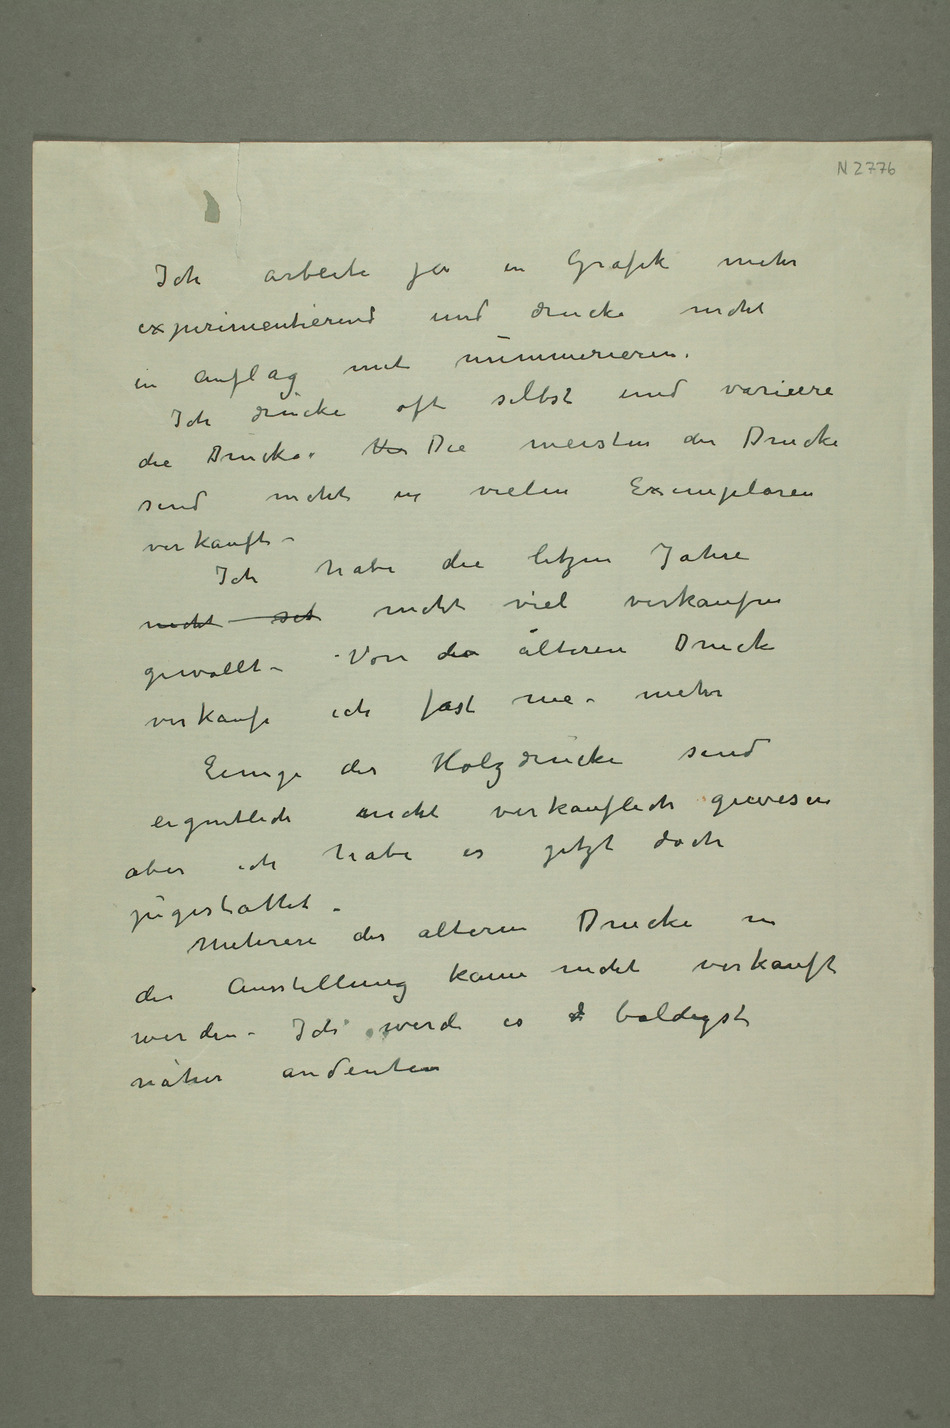 N 2776
Ich arbeite ja in Grafik mehr
experimentierend und drucke nicht
in Auflag mit nummerieren.
Ich drucke oft selbst und varieere
die Drucke. Die meisten der Drucke
sind nicht in vielen Exemplaren
verkauft –
Ich habe die letzen Jahre
nicht seh nicht viel verkaufen
gewollt – Von die älteren Druck
verkaufe ich fast nie – mehr
Einige der Holzdrucke sind
eigentlich nicht verkauflich gewesen
aber ich habe es jetzt doch
zugestattet –
Mehrere der älteren Drucke in
der Ausstellung kann nicht verkauft
werden – Ich werde es baldigst
näher andeuten